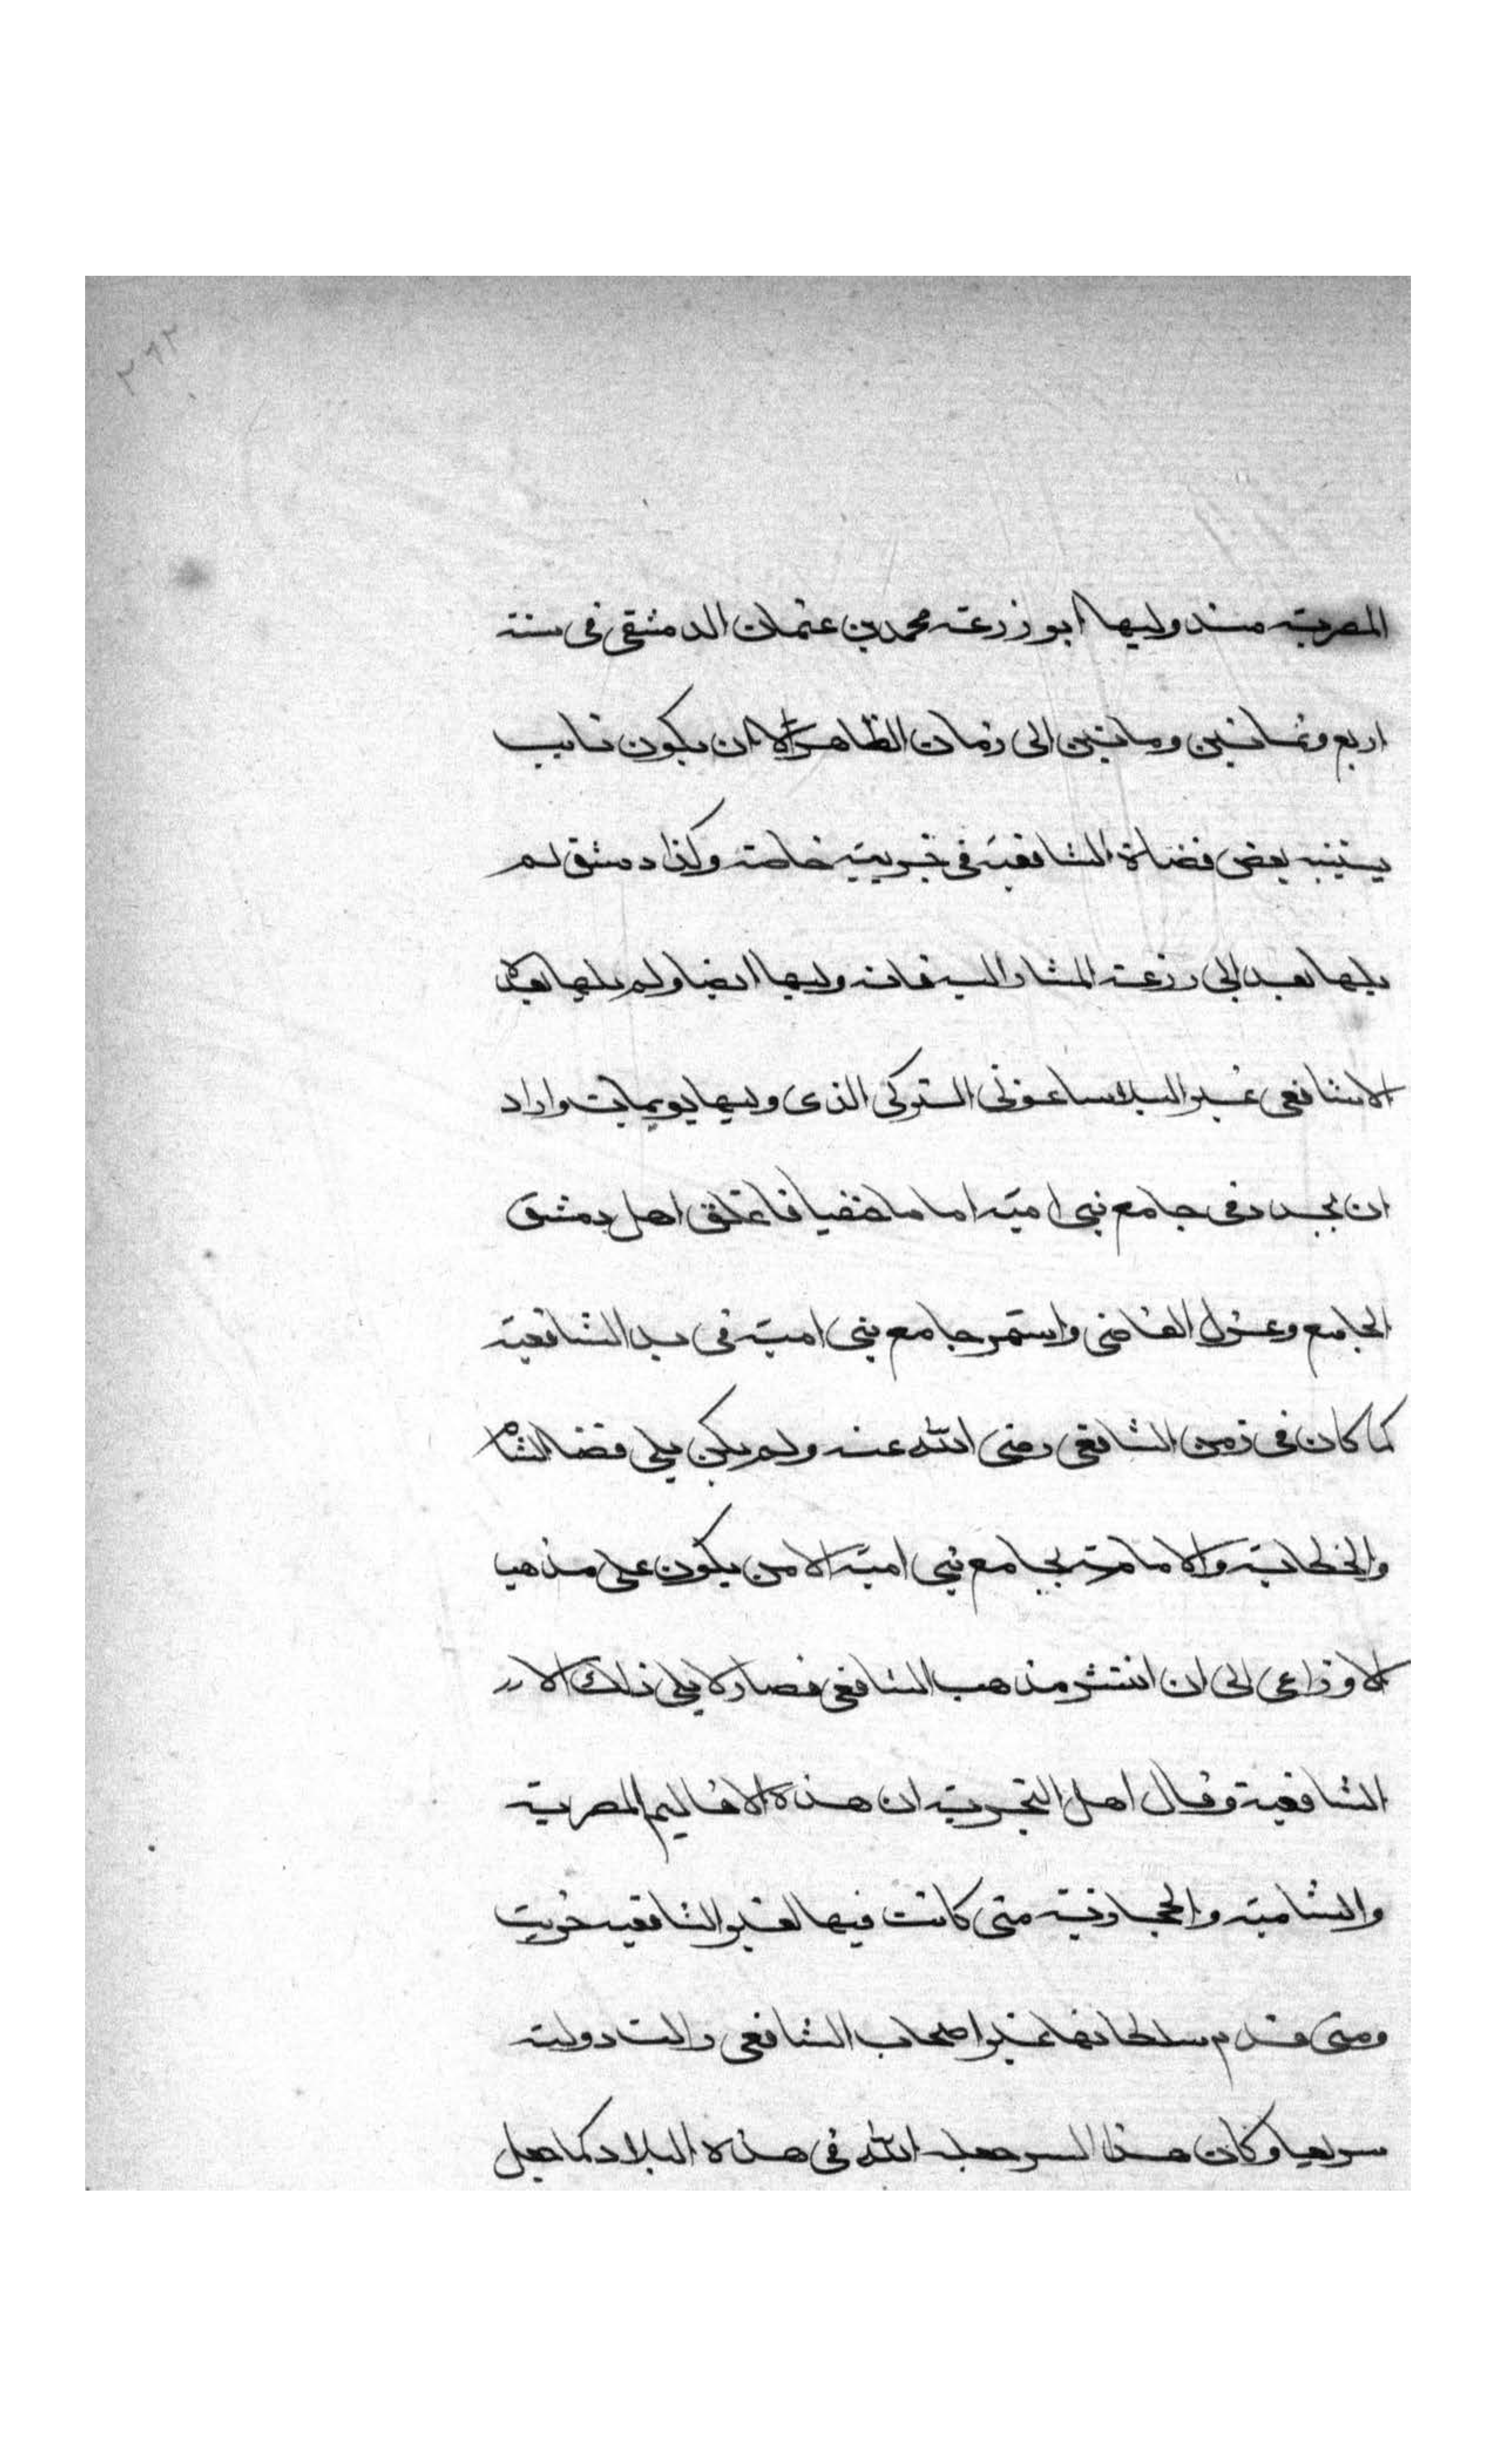 ٢٩٢
المصرية منذ وليها ابو زرعة محمد بن عثمان الدمشقى فى سنة
اربع وثمانين ومائتين الى زمان الظاهر الا ان يكون نايب
يستنيبه بعض قضاة الشافعية فى جزيية خاصة وكذا دمشق لم
يليها بعد ابى زرعة المشار اليه فانه وليها ايضا ولم يليها بعده
الا شافعى غير البلاساغونى التركى الذى وليها يويمات واراد
ان يجدد فى جامع بنى امية اماما حنفيا فاغلق اهل دمشق
الجامع وعزل القاضى واستمر جامع بنى امية فى يد الشافعية
كما كان فى زمن الشافعى رضى الله عنه ولم يكن يلى قضا الشام
والخطابة والامامة بجامع بنى امية الا من يكون على مذهب
الاوزاعى الى ان انتشر مذهب الشافعى فصار لا يلى ذلك الا
الشافعية وقال اهل التجربة ان هذه الاقاليم المصرية
والشامية والحجازية متى كانت فيها لغير الشافعيه خربت
ومتى قدم سلطانها غير اصحاب الشافعى زالت دولته
سريعا وكان هذا السر جعله الله فى هذه البلاد كما جعل